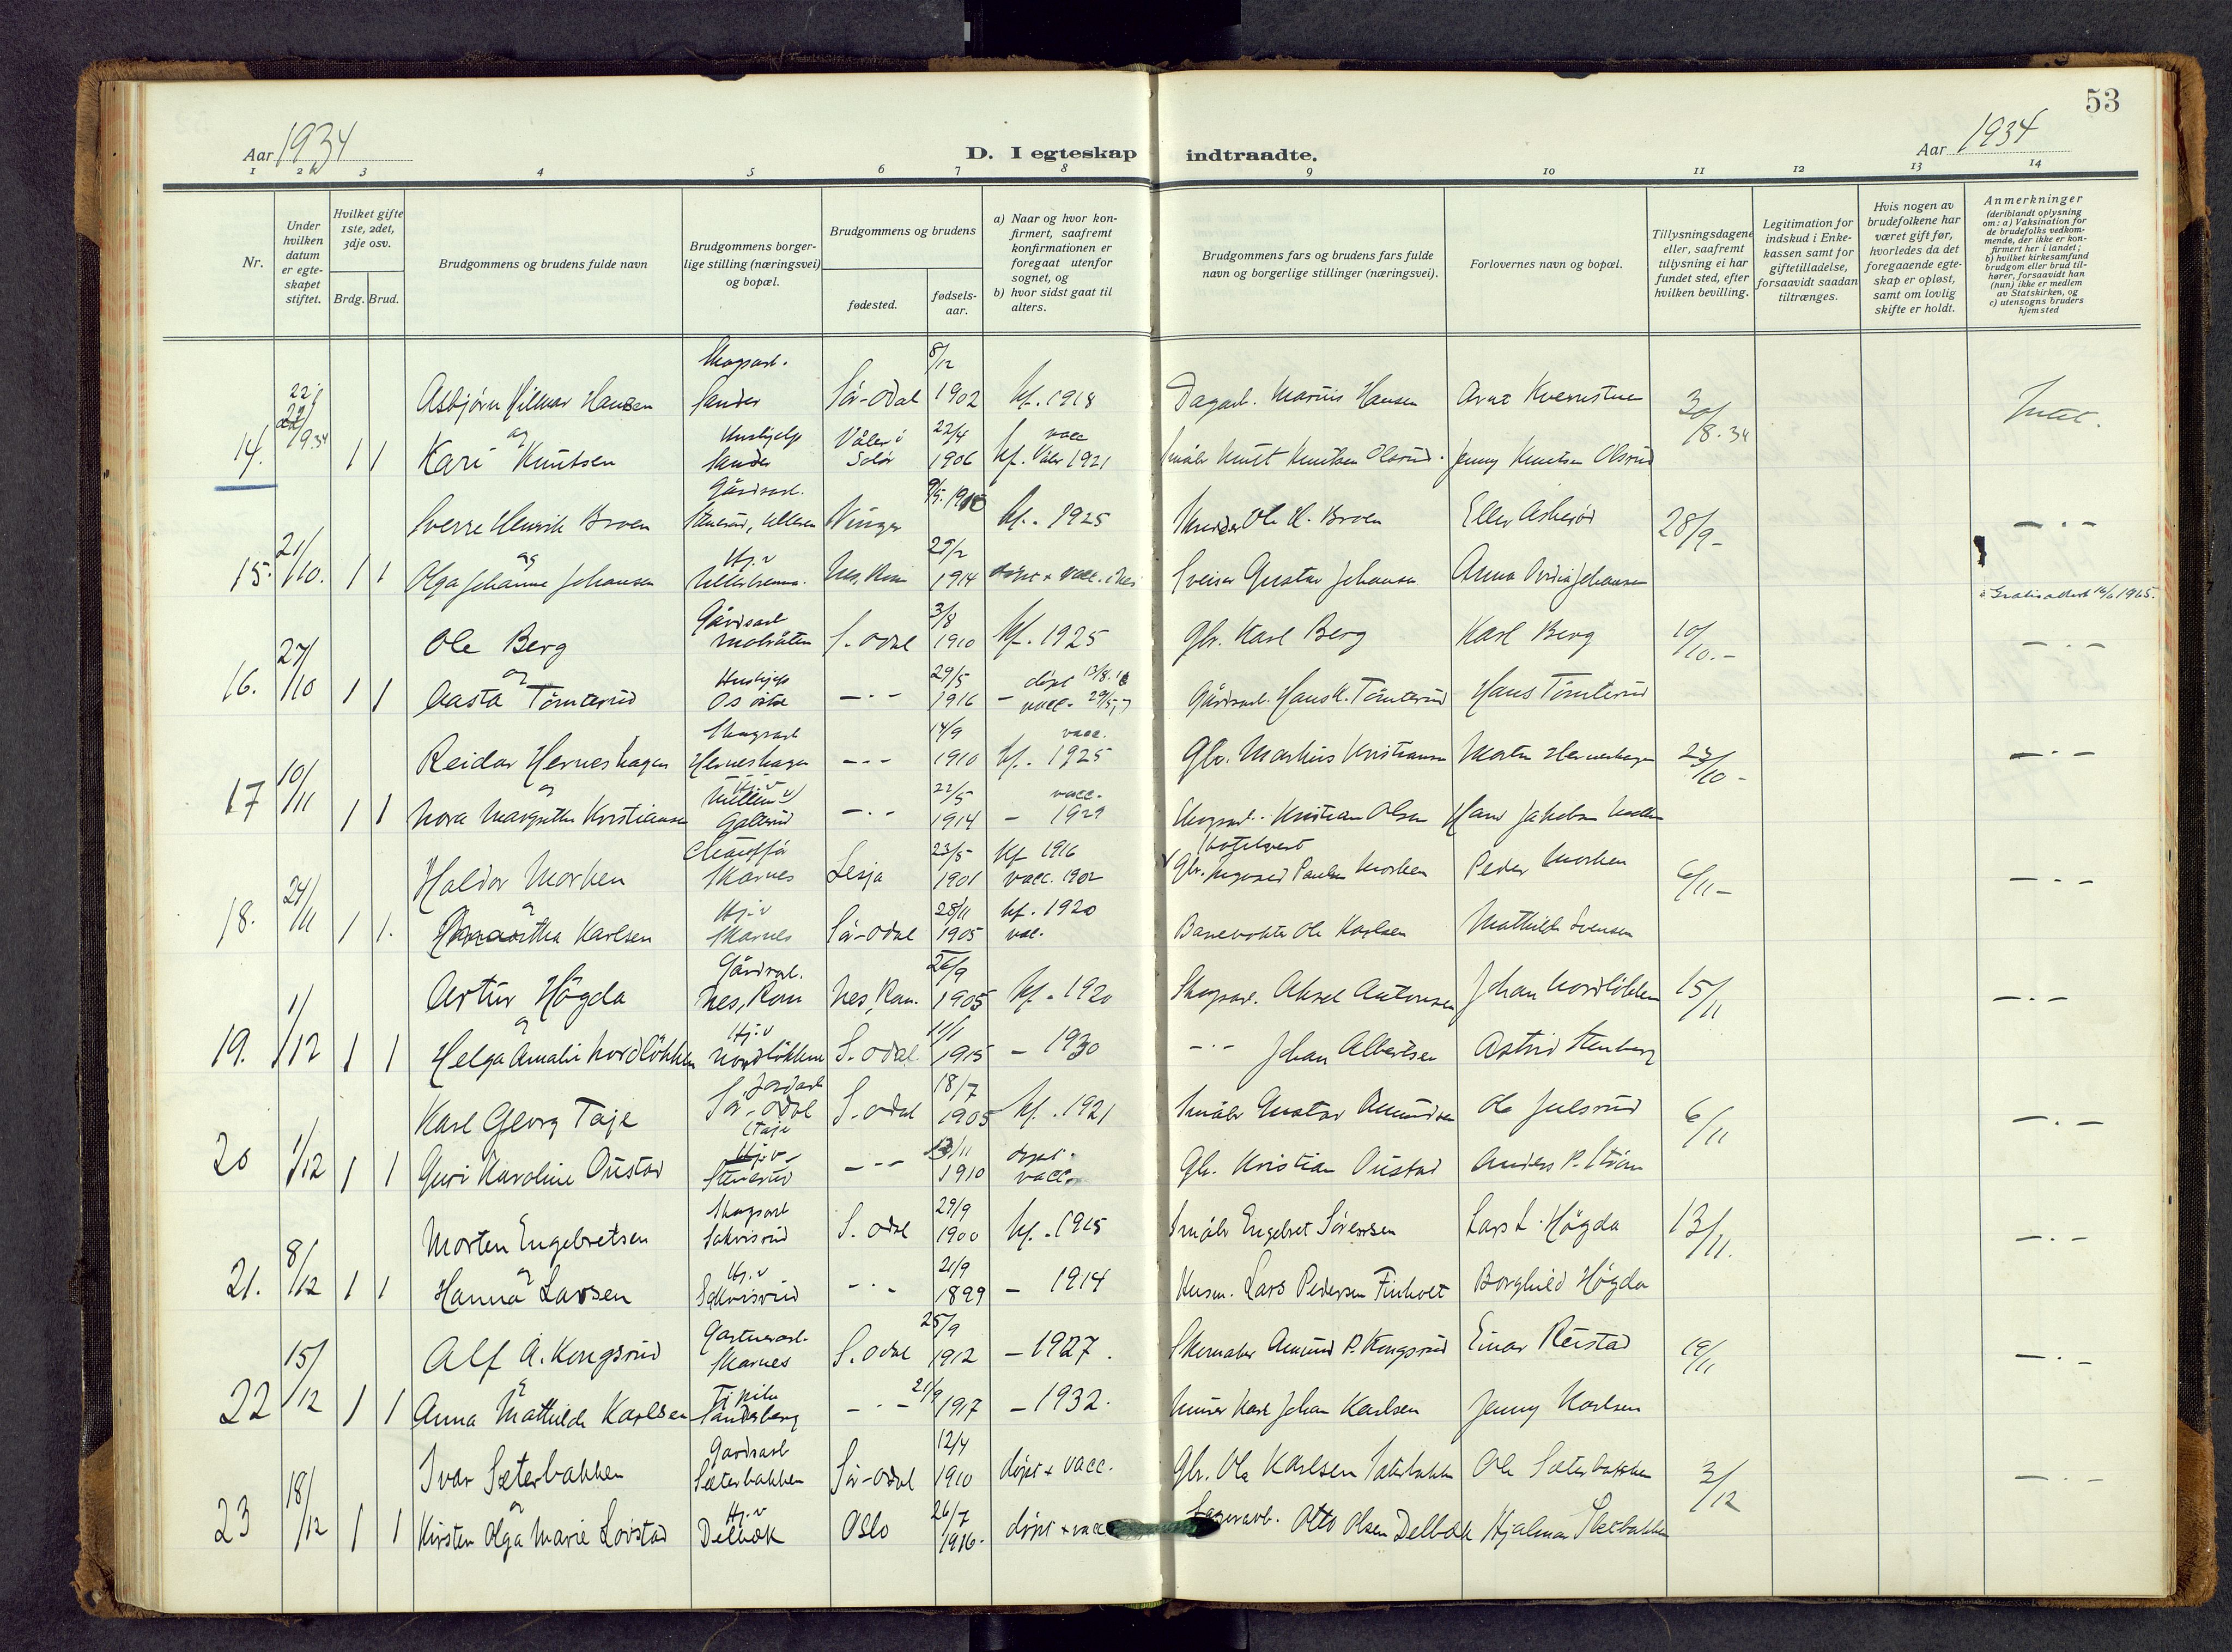 53
Aar 1934
D. I egteskap indtraadte.
Aar 1934
1 2 3 4 5 6 7 8 9 10 11 12 13 14
Nr.
Under hvilken datum er egteskapet stiftet.
Hvilket gifte 1ste, 2det, 3dje osv.
Brdg. Brud.
Brudgommens og brudens fulde navn
Brudgommens borgerlige stilling (næringsvei) og bopæl.
Brudgommens og brudens
fødested.
fødselsaar.
a) Naar og hvor konfirmert, saafremt konfirmationen er foregaat utenfor sognet, og
b) hvor sidst gaat til alters.
Brudgommens fars og brudens fars fulde navn og borgerlige stillinger (næringsvei).
Forlovernes navn og bopæl.
Tillysningsdagene eller, saafremt tillysning ei har fundet sted, efter hvilken bevilling.
Legitimation for indskud i Enkekassen samt for giftetilladelse, forsaavidt saadan tiltrænges.
Hvis nogen av brudefolkene har været gift før, hvorledes da det foregaaende egteskap er opløst, samt om lovlig skifte er holdt.
Anmerkninger (deriblandt oplysning om: a) Vaksination for de brudefolks vedkommende, der ikke er konfirmert her i landet; b) hvilket kirkesamfund brudgom eller brud tilhører, forsaavidt han (hun) ikke er medlem av Statskirken, og c) utensogns bruders hjemsted
Skogsarb. 8/12
Asbjørn Hilmar Hansen Sander Sør-Odal 1902 kf. 1918 Dagarb. Marius Hansen 30/8.34
14. 1 1 og Hushjelp Våler i 22/4 vacc
Kari Knutsen Sander Solør 1906 kf. Våler 1921 Småbr Knut Knutsen Olsrud. Jenny Knutsen Olsrud
Gårdsarb. 9/5. 1910
Sverre Henrik Broen Vinger kf. 1925 Ole H. Broen 28/9 -
15. 21/10. 1 1 og Hj.v
Olga Johanne Johansen Nes, Rom 1914 døpt + vacc. i Nes Sveiser Gustav Johansen
Gratisattest 1965.
Gårdsarb 3/8
Ole Berg S. Odal 1910 kf. 1925 Gbr. Karl Berg Karl Berg 10/10. -
16. 27/10 1 1 og Hushjelp 29/5 døpt 13/8.16
Aasta Tømterud Os østre -.- 1916 - vacc. Gårdsarb. Hans K. Tømterud Hans Tømterud
Skogsarb 14/9 vacc.
Reidar Herneshagen Herneshagen -.- 1910 kf. 1925 Gbr. Markus Kristiansen Morten Herneshagen 23/10 -
17 10/11 1 1 og Hj.v 22/5 vacc.
Nora Margrethe Kristiansen Galterud -.- 1914 - 1929 Skogsarb. Kristian Olsen
Chauffør 23/5 kf 1916 Hotelvert
Haldor Morken Skarnes Lesja 1901 vacc. 1902 Gbr. Paulsen Morken Peder Morken 6/11 -
18. 24/11 1 1. og Hj.v 28/11 kf. 1920
Karlsen Skarnes Sør-Odal 1905 vac. Banevokter Ole Karlsen Mathilde Svensen
Gårdsarb. 26/9
Artur Høgda Nes, Rom Nes, Rom. 1905 kf. 1920 Skogsarb. Aksel Antonsen Johan Nordløkken 15/11
19. 1/12 1 1 og Hj.v 11/1
Helga Amalie Nordløkken Nordløkken S. Odal 1915 - 1930 -.- Johan Albertsen Astrid Stenberg
Jordarb 18/7
Karl Georg Taje Sør-Odal (Taje S. Odal 1905 kf. 1921 Småbr Gustav Amundsen Ole Julsrud 6/11
20 1/12 1 1 Hj.v. 13/11 døpt.
Guri Karoline Oustad Stenerud -.- 1910 vacc. Gbr. Kristian Oustad Anders P. Strøm
Skogsarb 29/9
Morten Engebretsen Sakrisrud S. Odal 1900 kf. 1915 Småbr Engebret Sørensen Lars L. Høgda 13/11.
21. 8/12 1 1 og Hj.v 21/9
Hanna Larsen Sakrisrud -.- 1899 - 1914 Husm. Lars Pedersen Finholt Borghild Høgda
Gartnerarb. 25/9
Alf A. Kongsrud Skarnes S. Odal 1912 - 1927. Skomaker Amund P. Kongsrud Einar Reistad 19/11
22 15/12 1 1 og 21/9
Anna Mathilde Karlsen Sandsberg -.- 1917 - 1932. Murer Karl Johan Karlsen Jenny Karlsen
Gardsarb 12/4
Ivar Sæterbakken Sæterbakken Sør-Odal 1910 døpt + vacc. Gbr. Ole Karlsen Sæterbakken Ole Sæterbakken 3/12
23 18/12 1 1 og Hj.v 26/7
Kirsten Olga Marie Lovstad Delbæk Oslo 1916. døpt + vacc Sagverarb. Otto Olsen Delbæk Hjalmar Sæterbakken